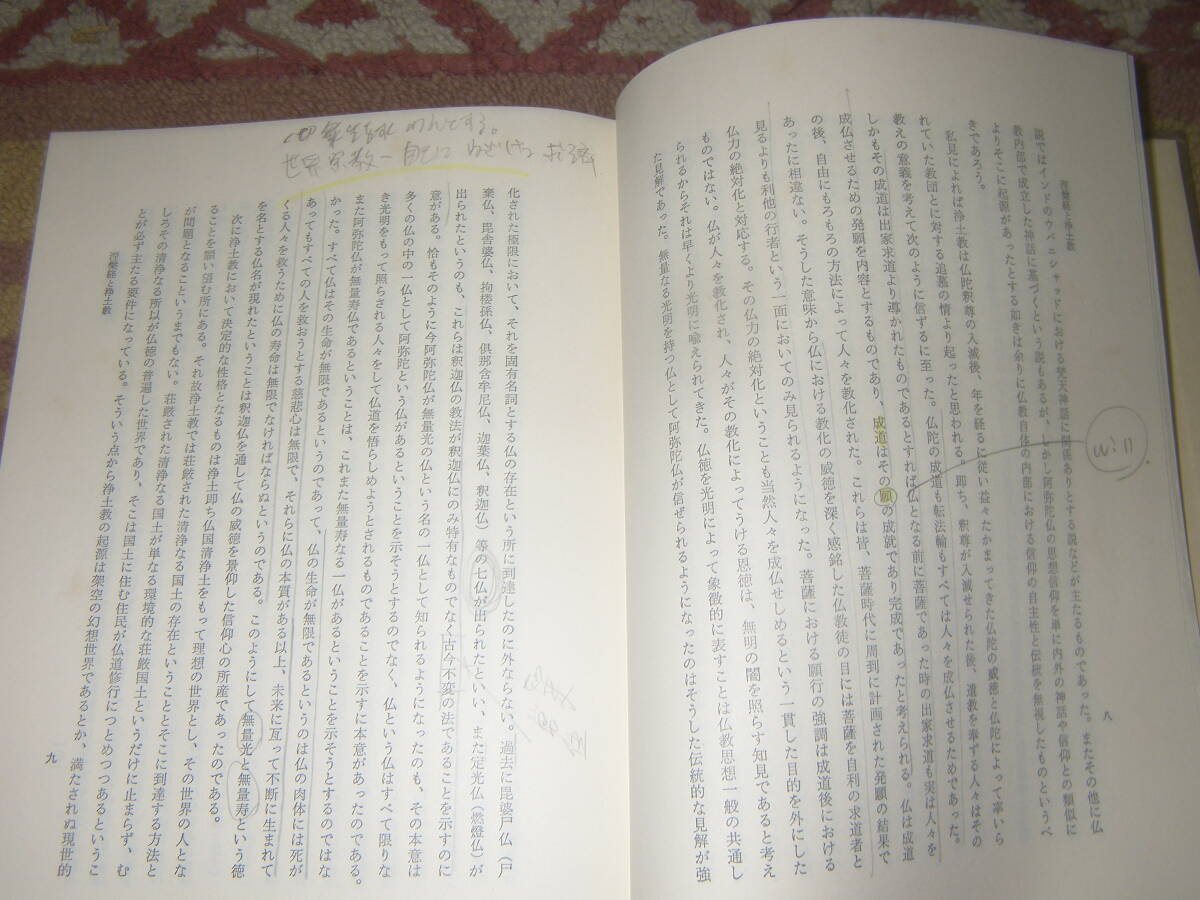 涅槃経と浄土教
八
説ではインドのウパニシャッドにおける梵天神話に関係ありとする説などが主たるものであった。またその他に仏
教内部で成立した神話に基づくという説もあるが、しかし阿弥陀仏の思想信仰を単に内外の神話や信仰との類似に
よりそこに起源があったとする如きは余りに仏教自体の内部における信仰の自主性と伝統を無視したものというべ
きであろう。
私見によれば浄土教は仏陀釈尊の入滅後、年を経るに従い益々たかまってきた仏陀の威徳と仏陀によって率いら
れていた教団とに対する追慕の情より起ったと思われる。即ち、釈尊が入滅せられた後、遺教を奉ずる人々はその
教えの意義を考えて次のように信ずるに至った。仏陀の成道も転法輪もすべては人々を成仏させるためであった。
しかもその成道は出家求道より導かれたものであるとすれば仏となる前に菩薩であった時の出家求道も実は人々を
成仏させるための発願を内容とするものであり、成道はその願の成就であり完成であったと考えられる。仏は成道
の後、自由にもろもろの方法によって人々を教化された。これらは皆、菩薩時代に周到に計画された発願の結果で
あったに相違ない。そうした意味から仏における教化の威徳を深く感銘した仏教徒の目には菩薩を自利の求道者と
見るよりも利他の行者という一面においてのみ見られるようになった。菩薩における願行の強調は成道後における
仏力の絶対化と対応する。その仏力の絶対化ということも当然人々を成仏せしめるという一貫した目的を外にした
ものではない。仏が人々を教化され、人々がその教化によってうける恩徳は、無明の闇を照らす知見であると考え
られるからそれは早くより光明に喩えられてきた。仏徳を光明によって象徴的に表すことは仏教思想一般の共通し
た見解であった。無量なる光明を持つ仏として阿弥陀仏が信ぜられるようになったのはそうした伝統的な見解が強
will
世界宗教一自己に
化された極限において、それを固有名詞とする仏の存在という所に到達したのに外ならない。過去に毘婆尸仏（尸
棄仏、毘舎婆仏、拘楼孫仏、倶那含牟尼仏、迦葉仏、釈迦仏）等の七仏が出られたといい、また定光仏（燃燈仏）が
出られたというのも、これらは釈迦仏の教法が釈迦仏にのみ特有なものでなく古今不変の法であることを示すのに
意がある。恰もそのように今阿弥陀仏が無量光の仏という名の一仏として知られるようになったのも、その本意は
多くの仏の中の一仏として阿弥陀という仏があるということを示そうとするのでなく、仏という仏はすべて限りな
き光明をもって照らされる人々をして仏道を悟らしめようとされるものであることを示すに本意があったのである。
また阿弥陀仏が無量寿仏であるということは、これまた無量寿なる一仏があるということを示そうとするのではな
かった。すべて仏はその生命が無限であるというのであって、仏の生命が無限であるというのは仏の肉体には死が
あってもすべての人を救おうとする慈悲心は無限で、それらに仏の本質がある以上、未来に亙って不断に生まれて
くる人々を救うために仏の寿命は無限でなければならぬというのである。このようにして無量光と無量寿という徳
を名とする仏名が現れたということは釈迦仏を通して仏の威徳を景仰した信仰心の所産であったのである。
次に浄土教において決定的な性格となるものは浄土即ち仏国清浄土をもって理想の世界とし、その世界の人とな
ることを願い望む所にある。それ故浄土教では荘厳された清浄なる国土の存在ということとそこに到達する方法と
が問題となるこというまでもない。荘厳された清浄なる国土が単なる環境的な荘厳国土というだけに止まらず、む
しろその清浄なる所以が仏徳の普遍した世界であり、そこは国土に住む住民が仏道修行につとめつつあるというこ
とが必ず主たる要件になっている。そういう点から浄土教の起源は架空の幻想世界であるとか、満たされぬ現世的
涅槃経と浄土教
九